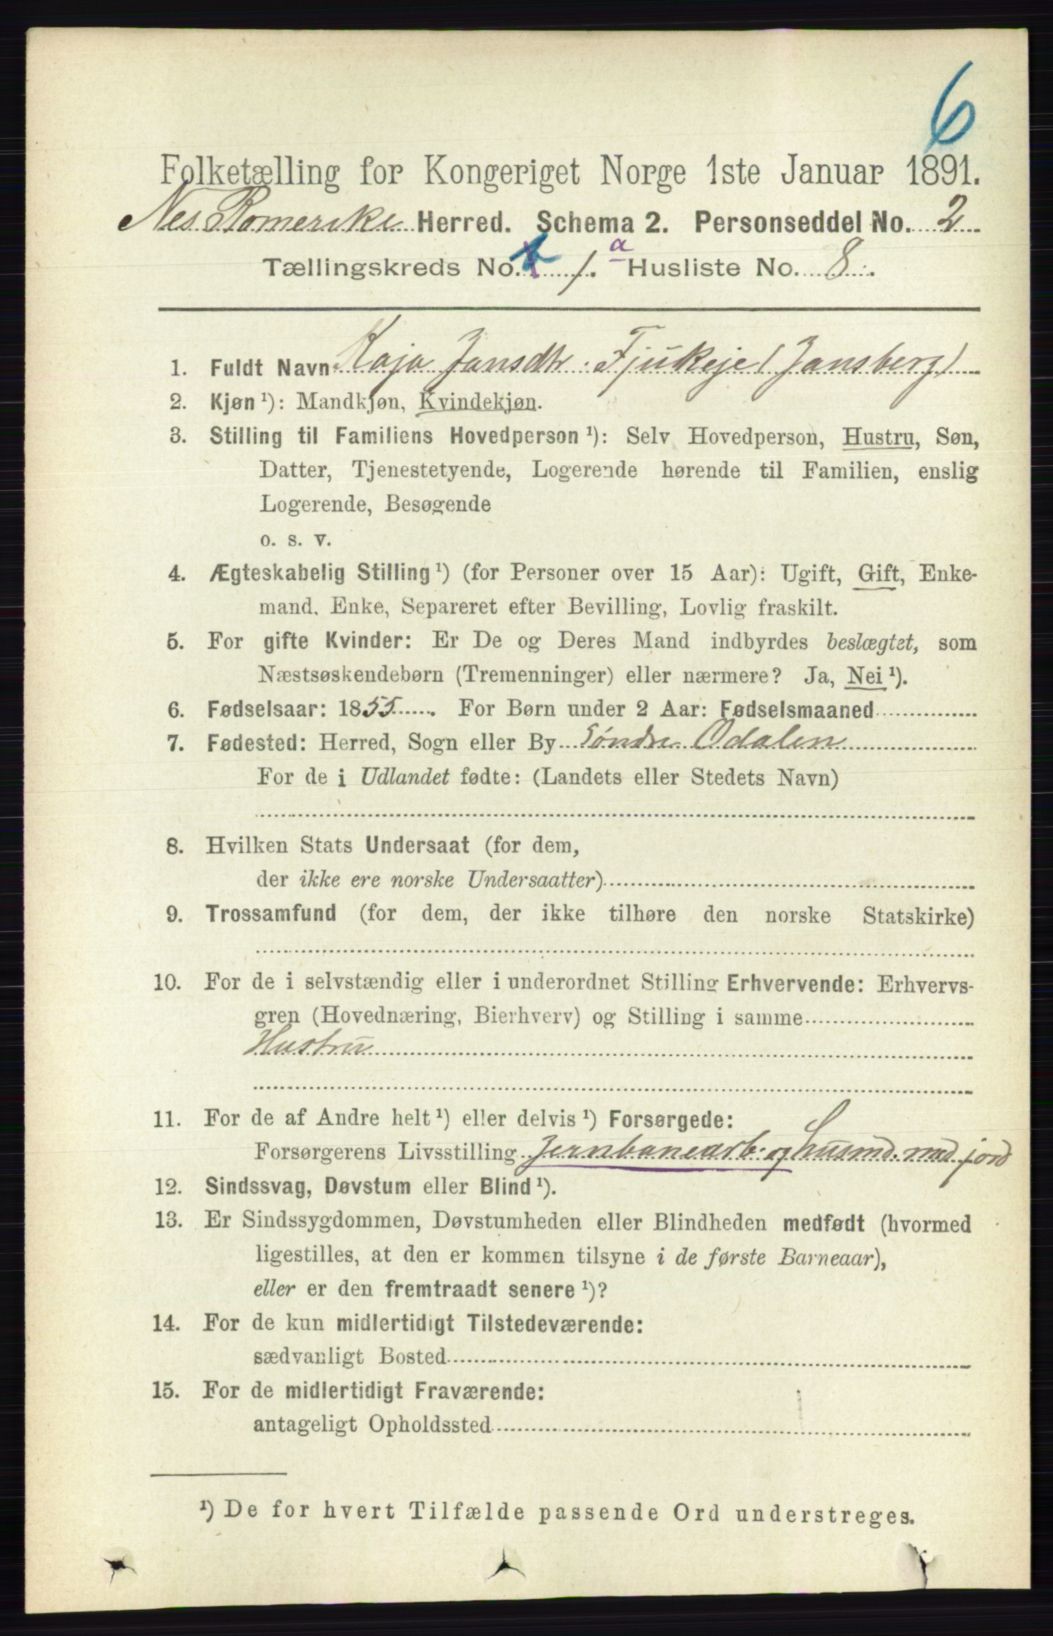 6
Folketælling for Kongeriget Norge 1ste Januar 1891.
Nes Romerike Herred. Schema 2. Personseddel No. 2
Tællingskreds No. 1. a Husliste No. 8.
1. Fuldt Navn Kaja Jansdtr. Fjukeje (Jansberg)
2. Kjøn ¹): Mandkjøn, Kvindekjøn.
3. Stilling til Familiens Hovedperson ¹): Selv Hovedperson, Hustru, Søn,
Datter, Tjenestetyende, Logerende hørende til Familien, enslig
Logerende, Besøgende
o. s. v.
4. Ægteskabelig Stilling ¹) (for Personer over 15 Aar): Ugift, Gift, Enke-
mand, Enke, Separeret efter Bevilling, Lovlig fraskilt.
5. For gifte Kvinder: Er De og Deres Mand indbyrdes beslægtet, som
Næstsøskendebørn (Tremenninger) eller nærmere? Ja, Nei ¹).
6. Fødselsaar: 1855. For Børn under 2 Aar: Fødselsmaaned
7. Fødested: Herred, Sogn eller By Søndre Odalen
For de i Udlandet fødte: (Landets eller Stedets Navn)
8. Hvilken Stats Undersaat (for dem,
der ikke ere norske Undersaatter)
9. Trossamfund (for dem, der ikke tilhøre den norske Statskirke)
10. For de i selvstændig eller i underordnet Stilling Erhvervende: Erhvervs-
gren (Hovednæring, Bierhverv) og Stilling i samme
Hustru
11. For de af Andre helt ¹) eller delvis ¹) Forsørgede:
Forsørgerens Livsstilling Jernbanearb. og husmd. med jord
12. Sindssvag, Døvstum eller Blind ¹).
13. Er Sindssygdommen, Døvstumheden eller Blindheden medfødt (hvormed
ligestilles, at den er kommen tilsyne i de første Barneaar),
eller er den fremtraadt senere ¹)?
14. For de kun midlertidigt Tilstedeværende:
sædvanligt Bosted
15. For de midlertidigt Fraværende:
antageligt Opholdssted
¹) De for hvert Tilfælde passende Ord understreges.